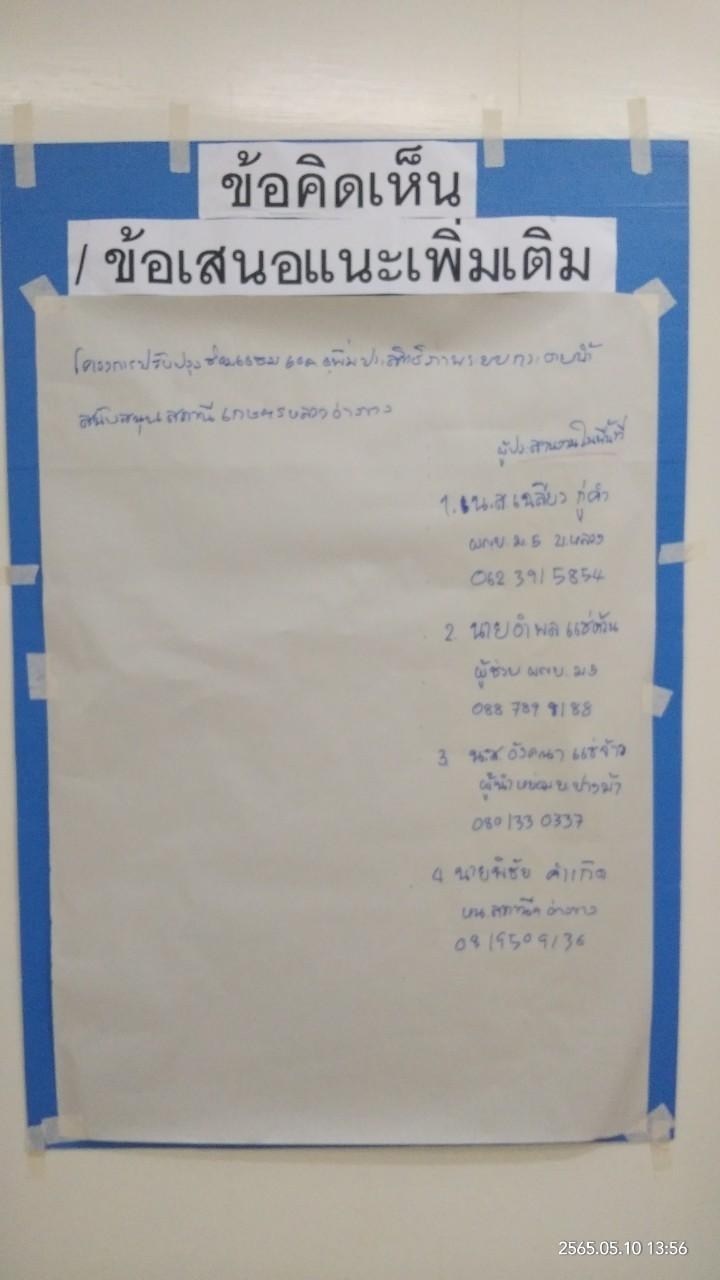 ข้อคิดเห็น
/ ข้อเสนอแนะเพิ่มเติม
โครงการปรับปรุงซ่อมแซม และเพิ่มประสิทธิภาพระบบกระจายน้ำ
สนับสนุนสถานีเกษตรหลวงอ่างขาง
ผู้ประสานงานในพื้นที่
1. น.ส.เฉลียว กู่คำ
ผญบ. ม.5 บ.หลวง
062 391 5854
2. นายอำพล แซ่
ผู้ช่วย ผญบ. ม.5
088 789 8188
3. น.ส. อังคณา แซ่จ๋าว
ผู้นำหย่อมบ.ปางม้า
080 133 0337
4. นายพิชัย คำเกิด
หน.สถานีฯ อ่างขาง
081 950 9136
2565.05.10 13:56